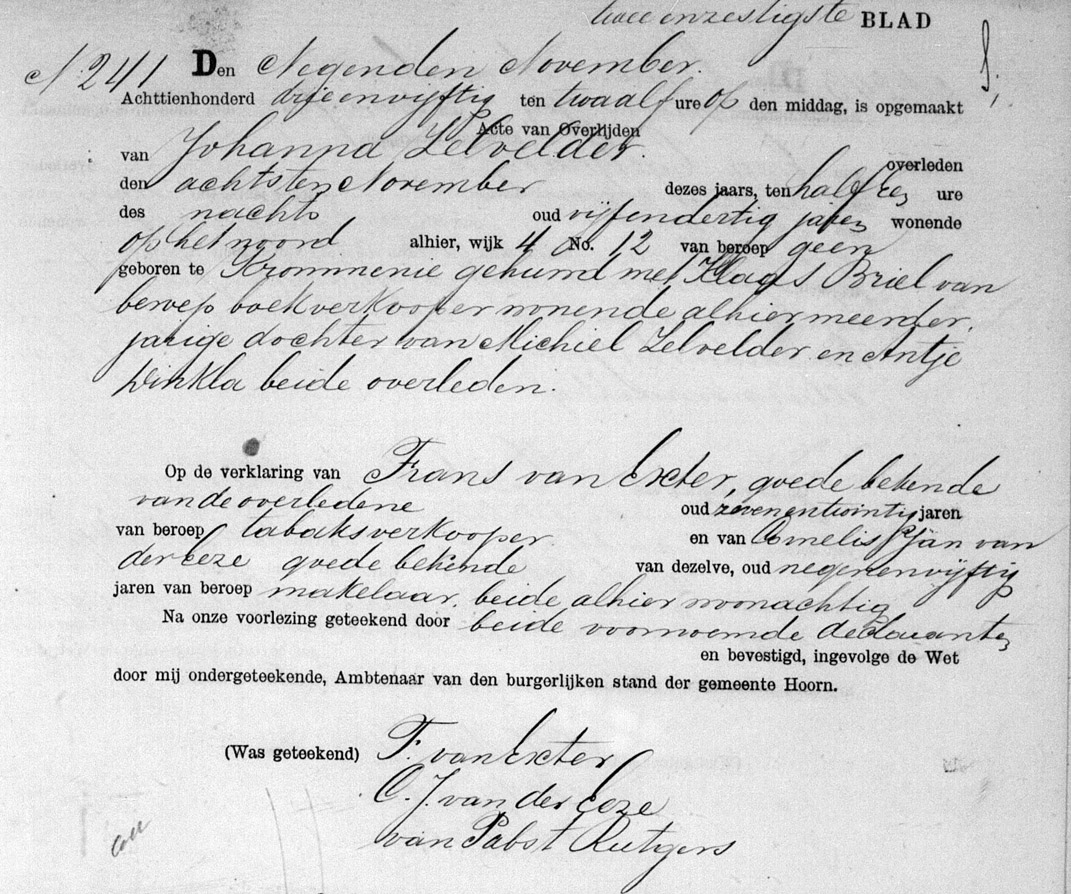 twee en zestigste BLAD
N 241 Den Negenden November.
Achttienhonderd drieenvijftig ten twaalf ure op den middag, is opgemaakt
Acte van Overlijden
van Johanna Zelvelder overleden
den achtsten November dezes jaars, ten half een ure
des nachts oud vijfendertig jaren wonende
op het noord alhier, wijk 4 No. 12 van beroep geen
geboren te Krommenie gehuwd met Klaas Briel van
beroep boekverkooper wonende alhier meerder,
jarige dochter van Michiel Zelvelder en Antje
Winkla beide overleden.
Op de verklaring van Frans van Exter, goede bekende
van de overledene oud zevenentwintig jaren
van beroep tabaksverkooper en van Cornelis Jan van
der Ceze goede bekende van dezelve, oud negenenvijftig
jaren van beroep makelaar, beide alhier woonachtig
Na onze voorlezing geteekend door beide voornoemde declaranten
en bevestigd, ingevolge de Wet
door mij ondergeteekende, Ambtenaar van den burgerlijken stand der gemeente Hoorn.
(Was geteekend) F. van Exter
C. J. van der Ceze
van Pabst Rutgers